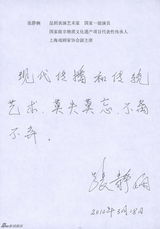 张静娴 昆剧表演艺术家 国家一级演员
国家级非物质文化遗产项目代表性传承人
上海戏剧家协会副主席
现代传播和传统
艺术，莫失莫忘，不离
不弃。
张静娴
2010年3月18日